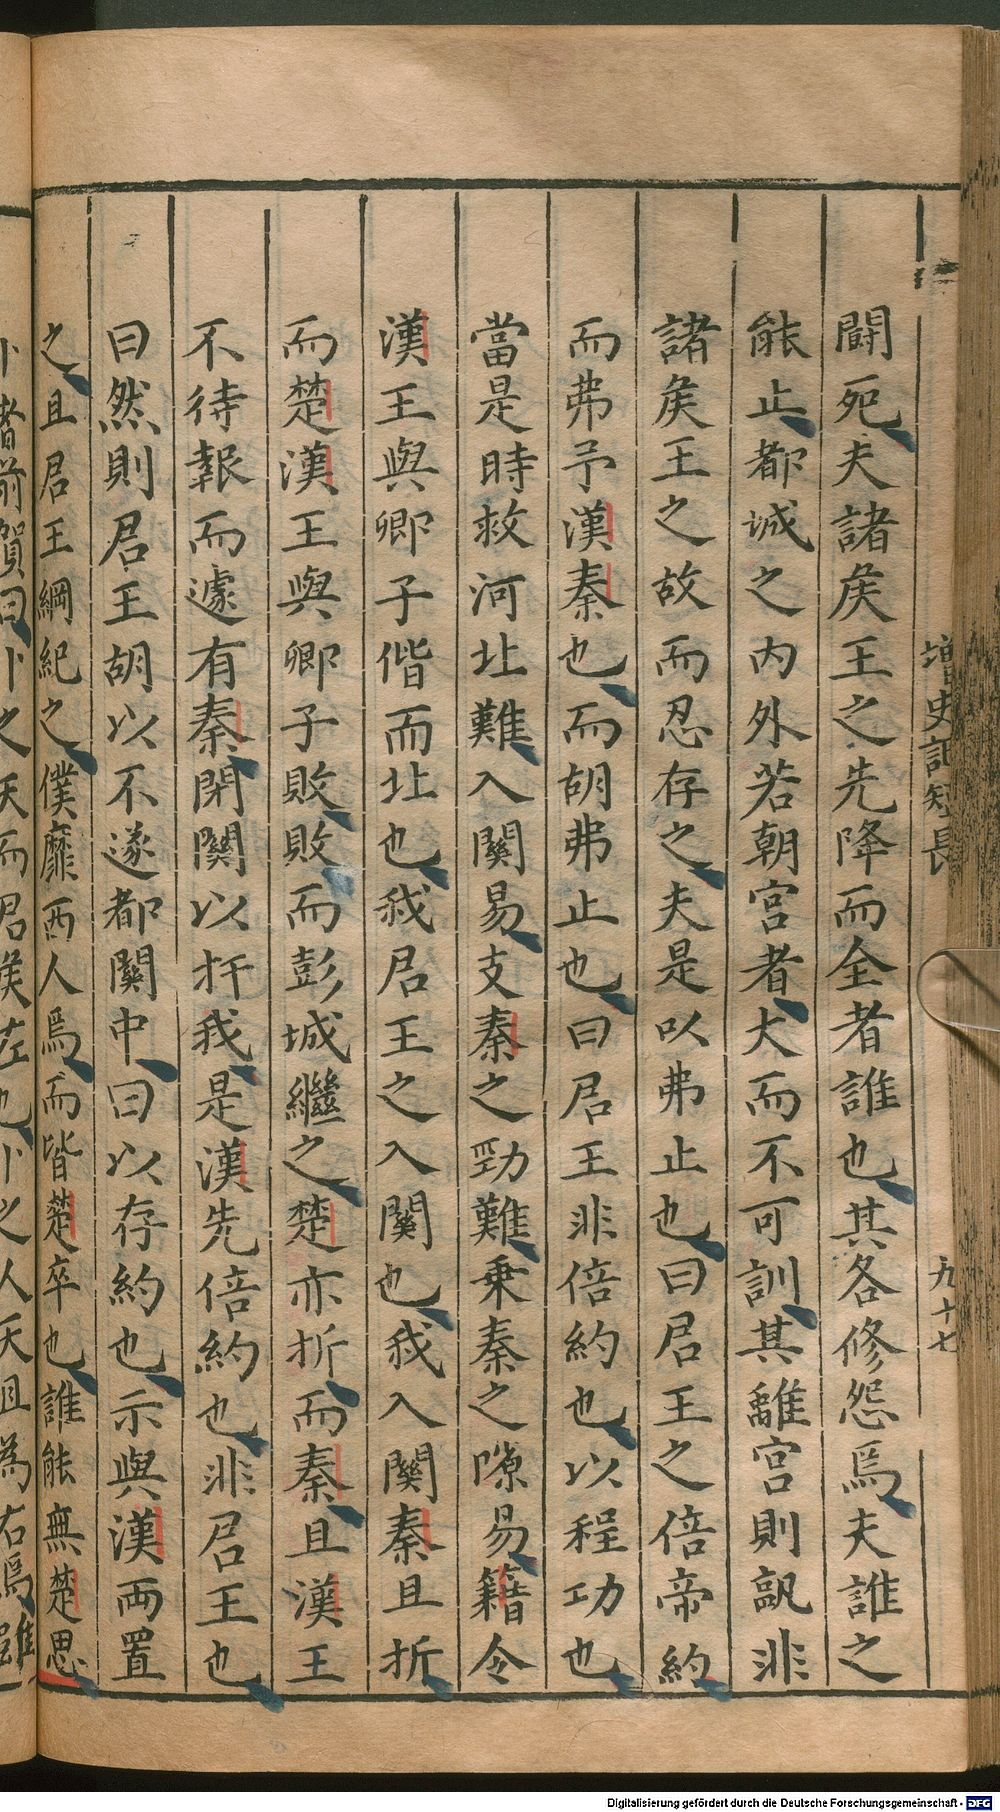 增史記短長
九十七
鬭死夫諸矦王之先降而全者誰也其各修怨焉夫誰之
能止都城之內外若朝宮者大而不可訓其離宮則訊非
諸矦王之故而忍存之夫是以弗止也曰君王之倍帝約
而弗予漢秦也而胡弗止也曰君王非倍約也以程功也
當是時救河北難入關易支秦之勁難乗秦之隙易籍令
漢王與卿子偕而北也我君王之入關也我入關秦且折
而楚漢王與卿子敗敗而彭城繼之楚亦折而秦且漢王
不待報而遽有秦閉關以扞我是漢先倍約也非君王也
曰然則君王胡以不遂都關中曰以存約也示與漢兩置
之且君王綱紀之僕靡西人焉而皆楚卒也誰能無楚思
卜者前賀曰卜之天而君矦左也卜之人天且為右焉雖
Digitalisierung gefördert durch die Deutsche Forschungsgemeinschaft - DFG